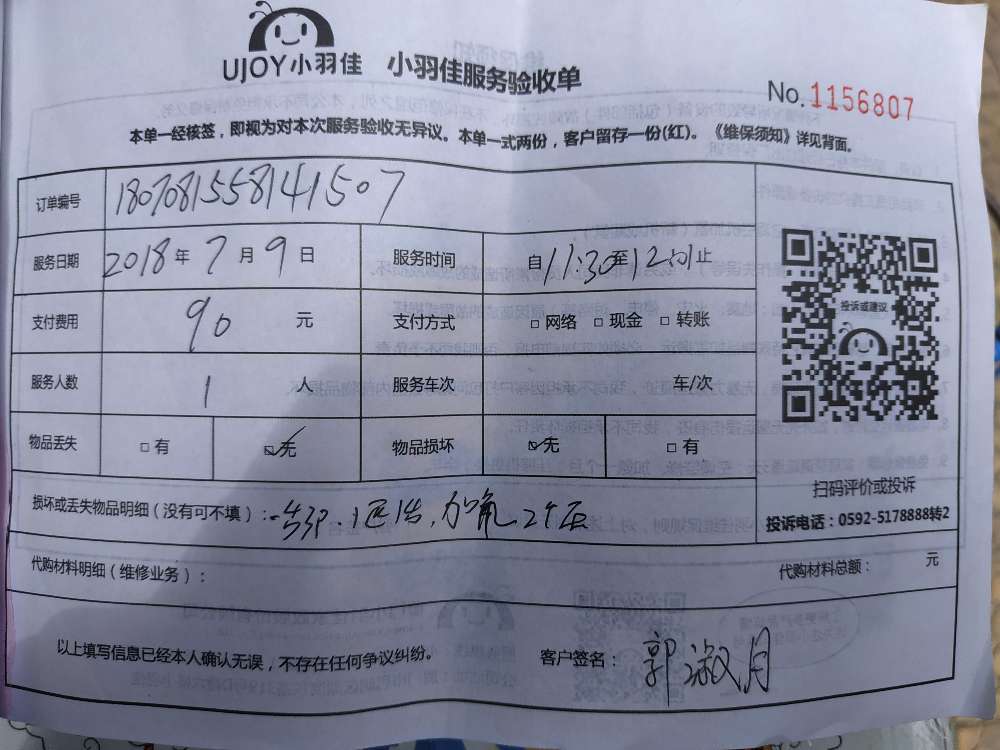 UJOY小羽佳 小羽佳服务验收单
No.1156807
本单一经核签，即视为对本次服务验收无异议。本单一式两份，客户留存一份(红)。《维保须知》详见背面。
订单编号 1807081558141507
服务日期 2018年7月9日 服务时间 自11:30至12:01止
支付费用 90 元 支付方式 □网络 □现金 □转账
服务人数 1 人 服务车次 车/次
物品丢失 □有 ☑无 物品损坏 ☑无 □有
投诉或建议
扫码评价或投诉
投诉电话：0592-5178888转2
损坏或丢失物品明细（没有可不填）：
代购材料明细（维修业务）： 代购材料总额： 元
以上填写信息已经本人确认无误，不存在任何争议纠纷。 客户签名：郭淑月